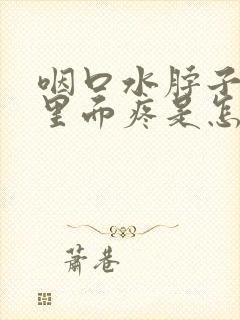 咽口水脖子
里而疼是怎
萧巷